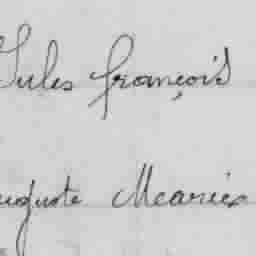 Jules françois
uguste Mearies